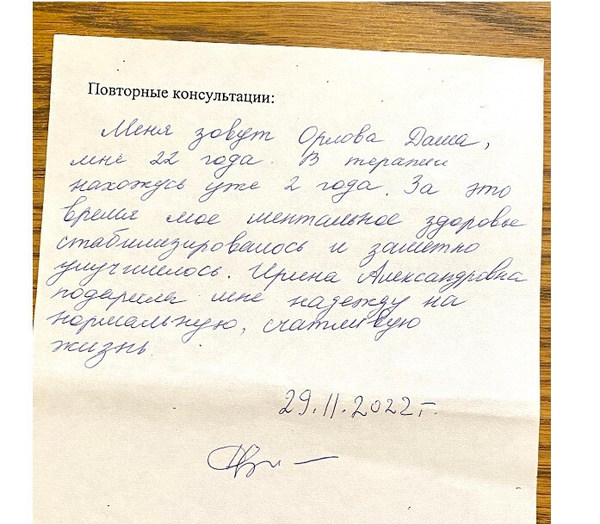 Повторные консультации:
Меня зовут Орлова Даша,
мне 22 года. В терапии
нахожусь уже 2 года. За это
время мое ментальное здоровье
стабилизировалось и заметно
улучшилось. Ирина Александровна
подарила мне надежду на
нормальную, счатливую
жизнь.
29.11.2022г.